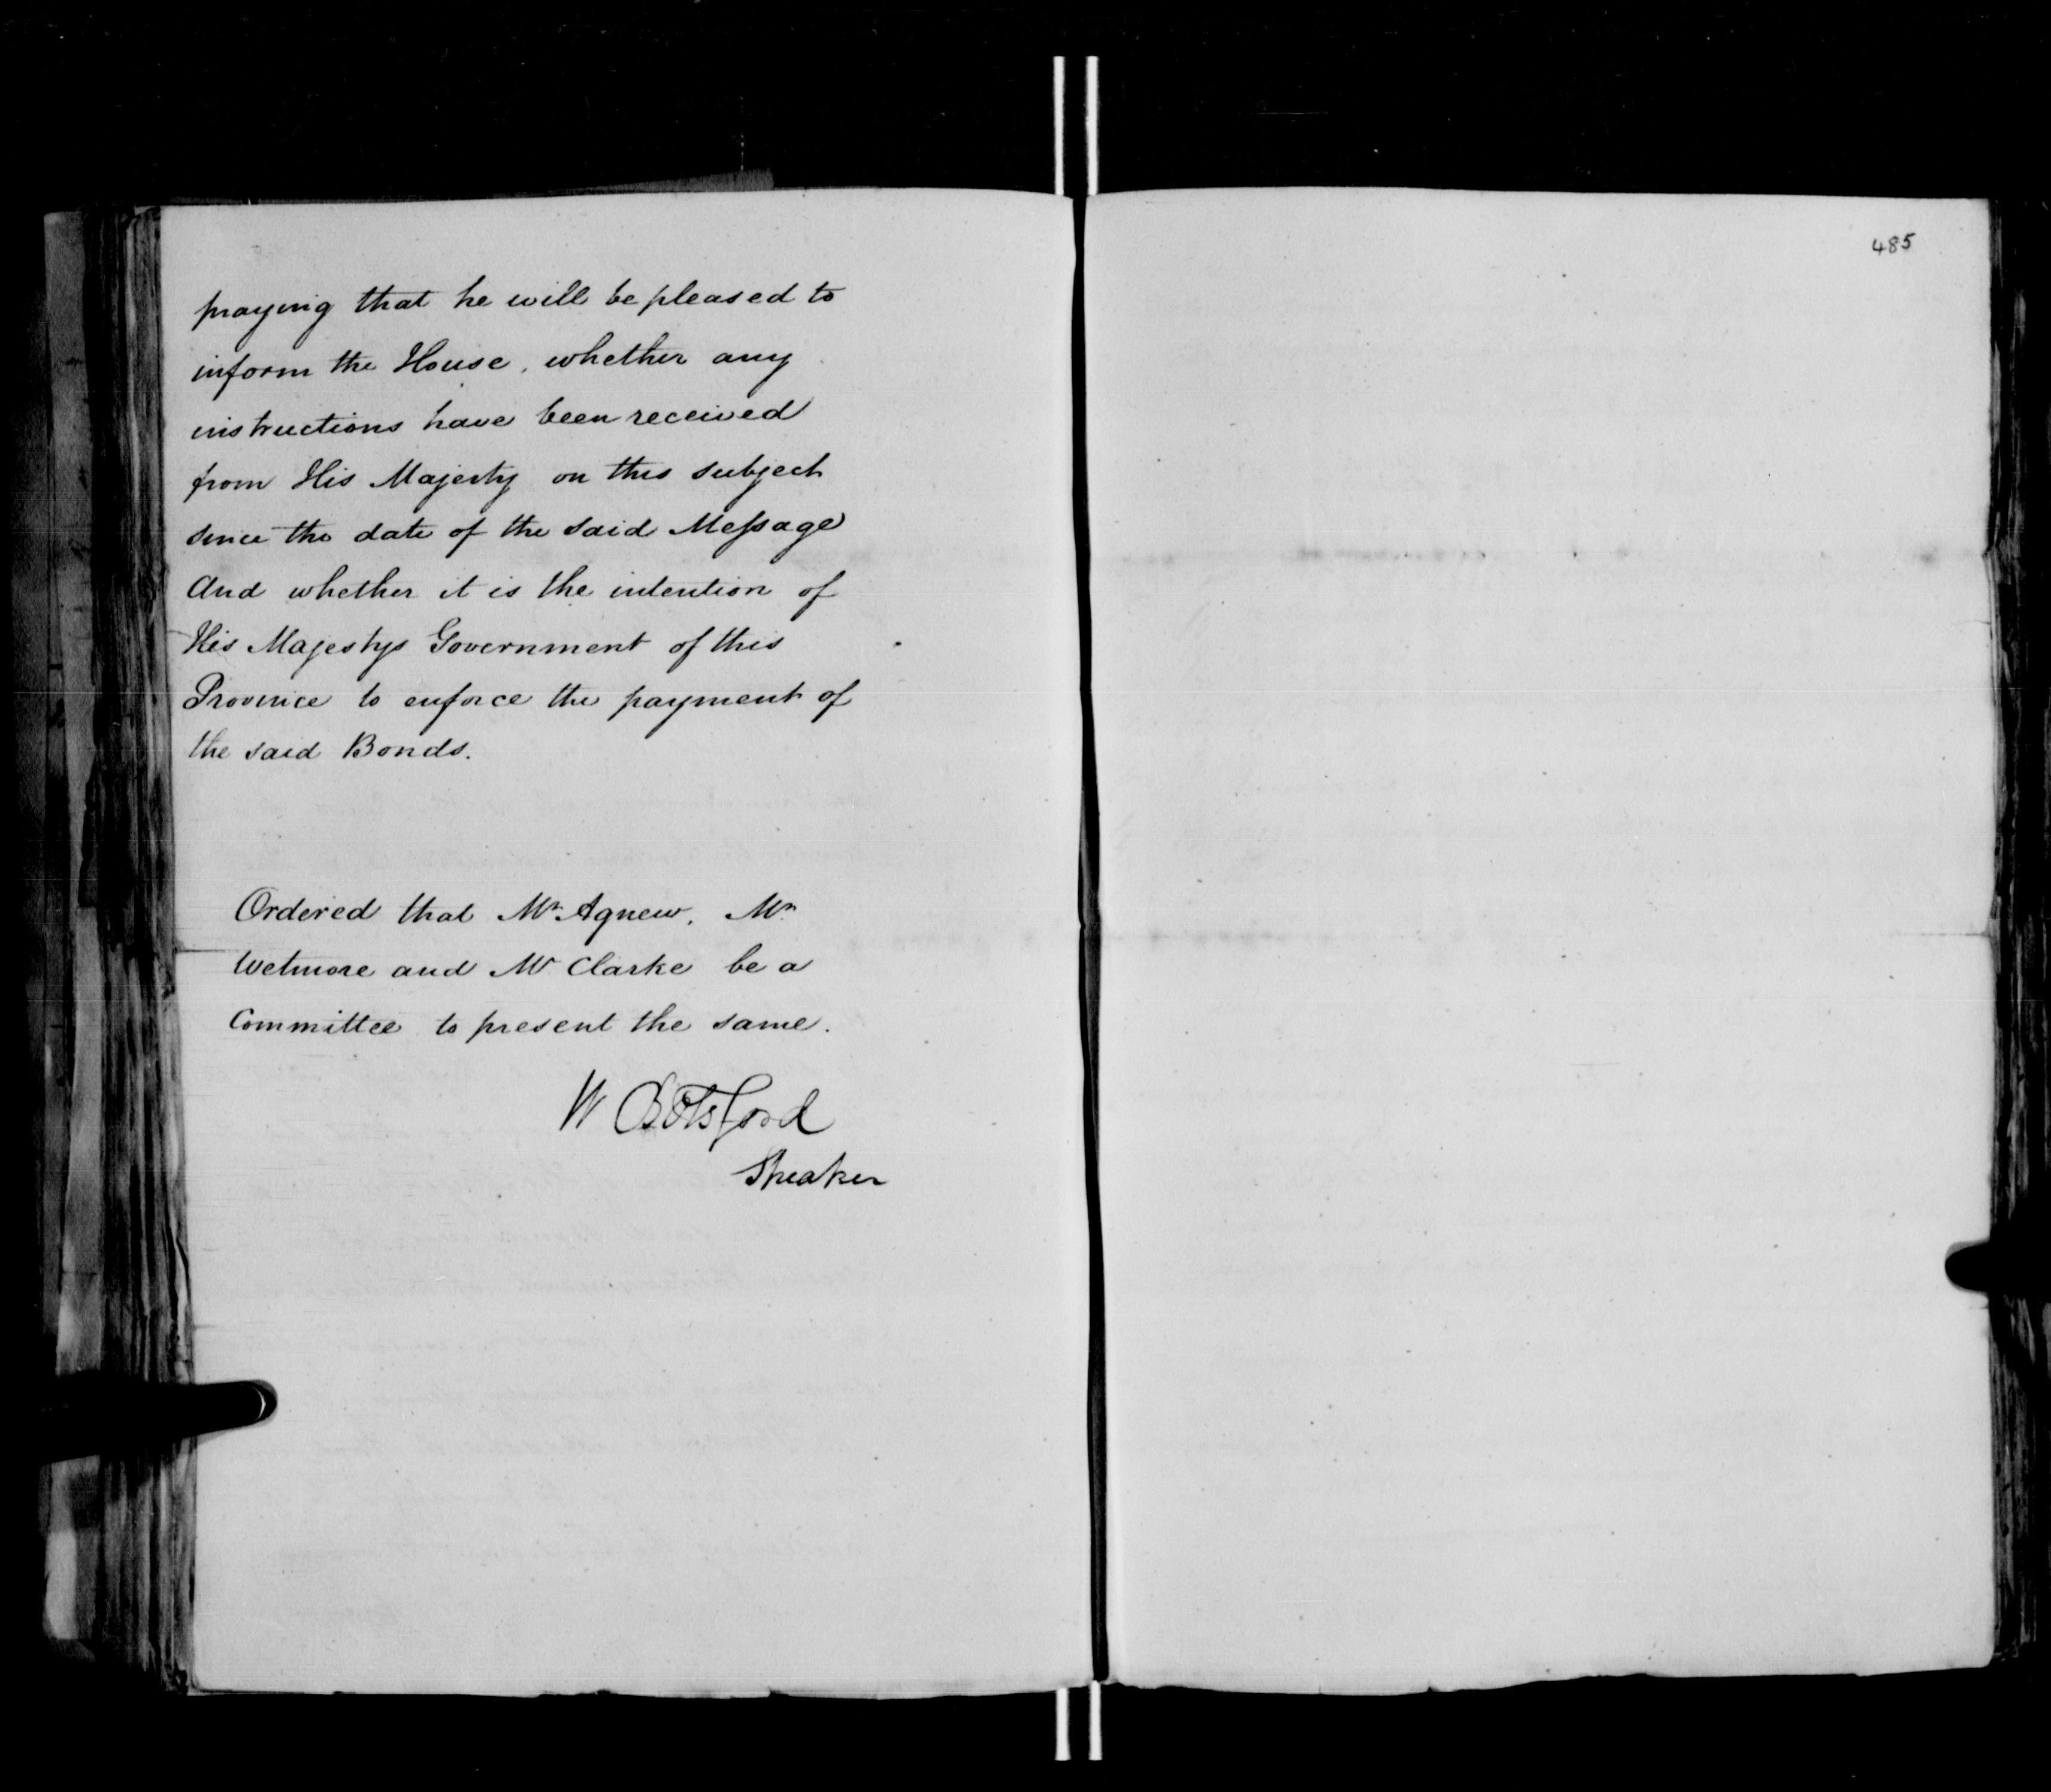 praying that he will be pleased to
inform the House, whether any
instructions have been received
from His Majesty on this subject
since the date of the said Meſsage
And whether it is the intention of
His Majestys Government of this
Province to enforce the payment of
the said Bonds.
Ordered that Mr. Agnew, Mr.
Wetmore and Mr Clarke be a
Committee to present the same.
W Botsford
Speaker
485